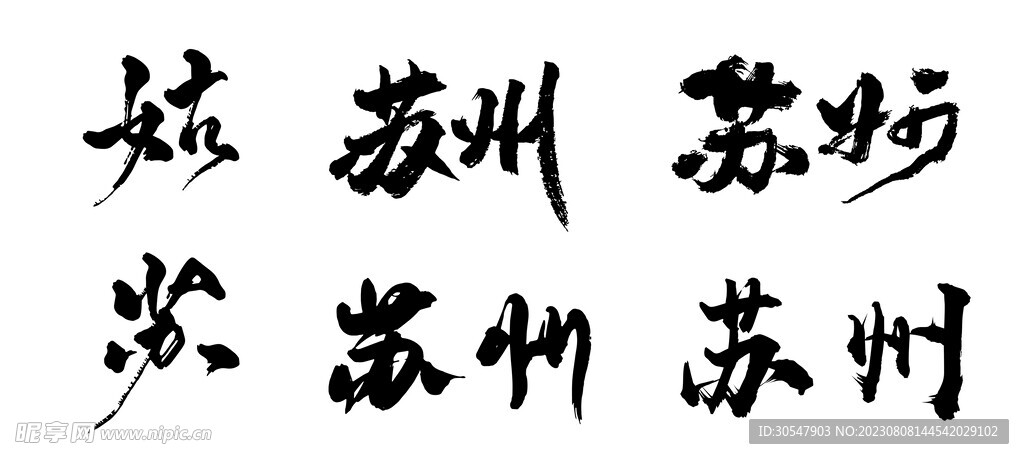 姑 苏州 苏州
苏 苏州 苏州
昵享网 www.nipic.cn
ID:30547903 NO:20230808144542029102